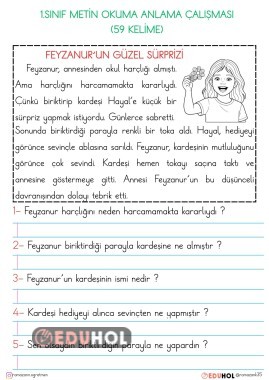 1.SINIF METİN OKUMA ANLAMA ÇALIŞMASI
(59 KELİME)
FEYZANUR'UN GÜZEL SÜRPRİZİ
Feyzanur, annesinden okul harçlığı almıştı.
Ama harçlığını harcamamakta kararlıydı.
Çünkü biriktirip kardeşi Hayal'e küçük bir
sürpriz yapmak istiyordu. Günlerce sabretti.
Sonunda biriktirdiği parayla renkli bir toka aldı. Hayal, hediyeyi
görünce sevinçle ablasına sarıldı. Feyzanur, kardesinin mutluluğunu
görünce çok sevindi. Kardesi hemen tokayı saçına taktı ve
annesine göstermeye gitti. Annesi Feyzanur'un bu düşünceli
davranışından dolayı tebrik etti.
1- Feyzanur harçlığını neden harcamamakta kararlıydı ?
2- Feyzanur biriktirdiği parayla kardeşine ne almıştır ?
3- Feyzanur'un kardesinin ismi nedir ?
4- Kardeşi hediyeyi alınca sevinçten ne yapmıştır ?
EDUHOL
5- Sen olsaydın biriktirdiğin parayla ne yapardın ?
EDUHOL